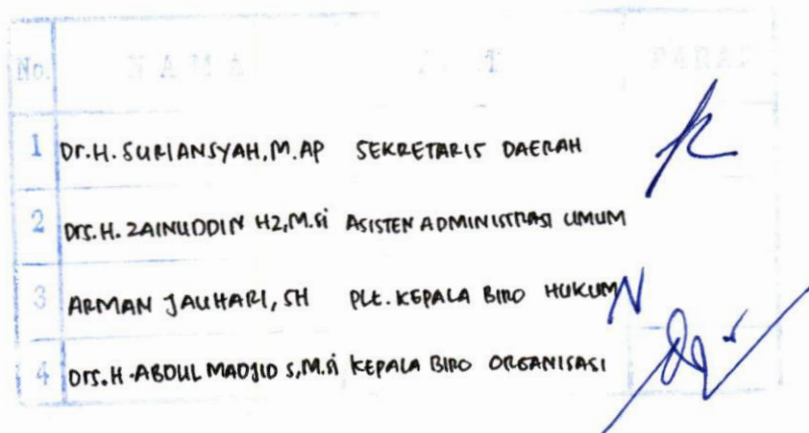 No. NAMA PARAF
1 Dr.H. SURIANSYAH, M.AP SEKRETARIS DAERAH
2 Drs.H. ZAINUDDIN HZ, M.Si ASISTEN ADMINISTRASI UMUM
3 ARMAN JAUHARI, SH PLt. KEPALA BIRO HUKUM
4 Drs.H. ABDUL MADJID S, M.Si KEPALA BIRO ORGANISASI